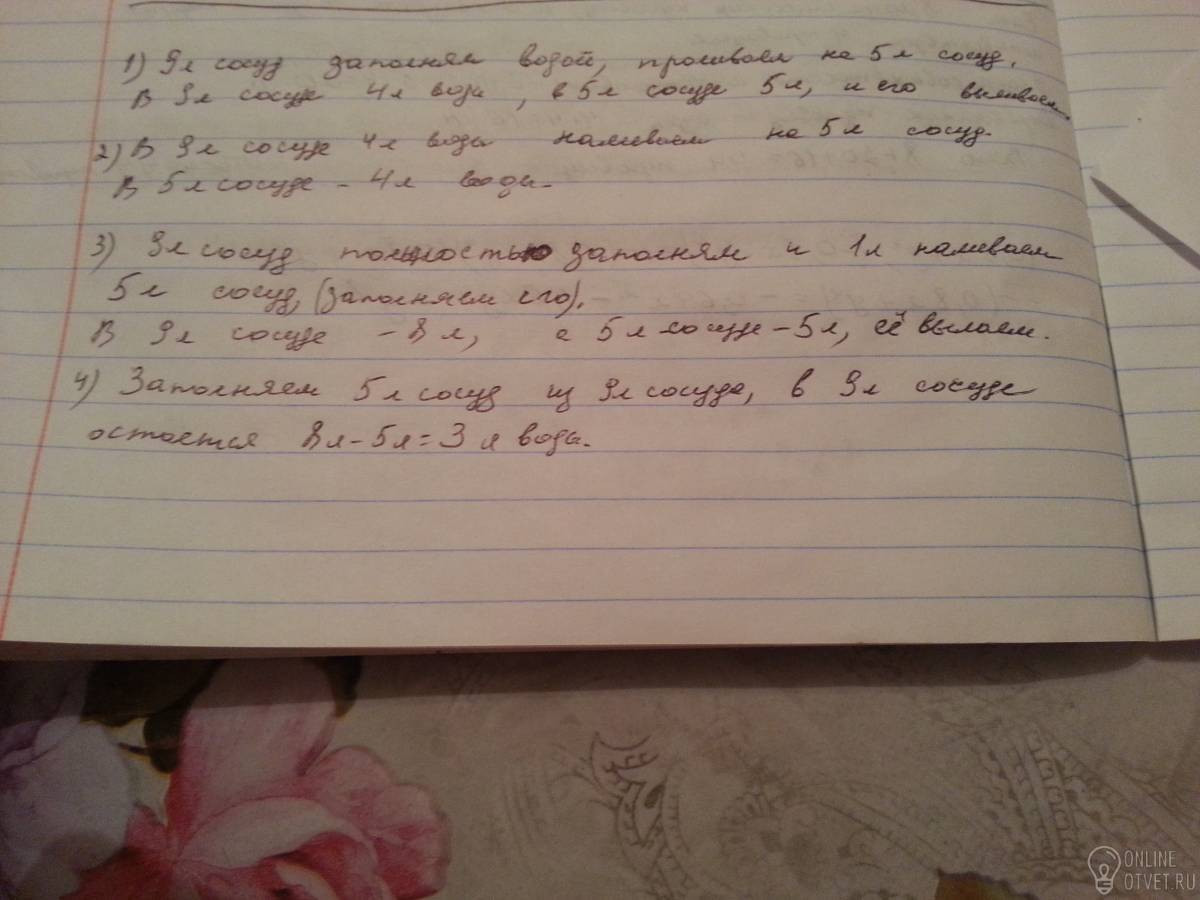 1) 9л сосуд заполням водой, проливаем на 5л сосуд.
В 9л сосуде 4л воды, в 5л сосуде 5л, и его выливаем.
2) В 9л сосуде 4л воды наливаем на 5л сосуд.
В 5л сосуде - 4л воды.
3) 9л сосуд полностью заполням и 1л наливаем
5л сосуд, (заполняем его).
В 9л сосуде - 8л, а 5л сосуде - 5л, её вылаем.
4) Заполняем 5л сосуд из 9л сосуда, в 9л сосуде
остается 8л - 5л = 3л воды.
ONLINE
OTVET.RU